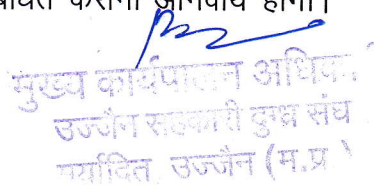 कराना अनिवार्य होगा।
मुख्य कार्यपालन अधिका
उज्जैन सहकारी दुग्ध संघ
मर्यादित उज्जैन (म.प्र